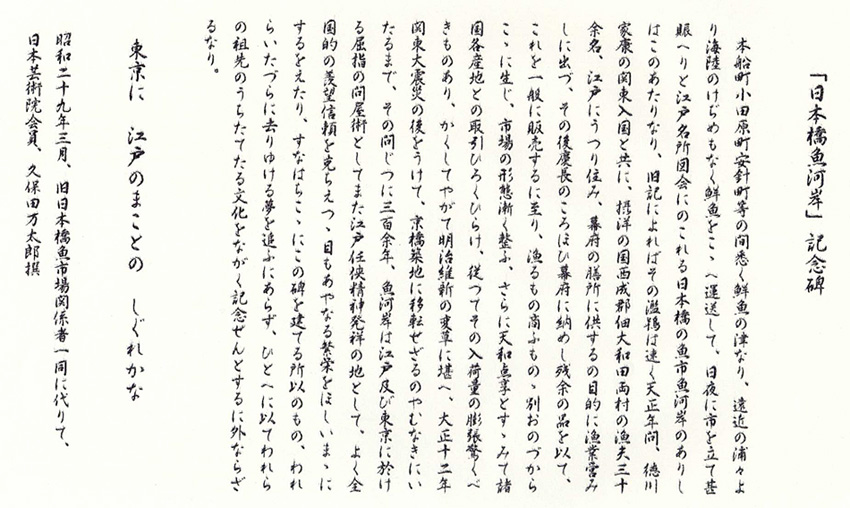 「日本橋魚河岸」記念碑
本船町小田原町安針町等の間悉く鮮魚の津なり、遠近の浦々よ
り海陸のけぢめもなく鮮魚をこゝへ運送して、日夜に市を立て甚
賑へりと江戸名所図会にのこれる日本橋の魚市魚河岸のありし
はこのあたりなり、旧記によればその濫觴は遠く天正年間、徳川
家康の関東入国と共に、摂津の国西成郡佃大和田両村の漁夫三十
余名、江戸にうつり住み、幕府の膳所に供するの目的に漁業営み
しに出づ、その後慶長のころほひ幕府に納めし残余の品を以て、
これを一般に販売するに至り、漁るもの商ふもの、別おのづから
こゝに生じ、市場の形態漸く整ふ、さらに天和貞享とすゝみて諸
国各産地との取引ひろくひらけ、従つてその入荷量の膨張驚くべ
きものあり、かくしてやがて明治維新の変革に堪へ、大正十二年
関東大震災の後をうけて、京橋築地に移転せざるのやむなきにい
たるまで、その間じつに三百余年、魚河岸は江戸及び東京に於け
る屈指の問屋街としてまた江戸任侠精神発祥の地として、よく全
国的の羨望信頼を克ちえつゝ目もあやなる繁栄をほしいまゝに
するをえたり、すなはちこゝにこの碑を建てる所以のもの、われ
らいたづらに去りゆける夢を追ふにあらず、ひとへに以てわれら
の祖先のうちたてたる文化をながく記念せんとするに外ならざ
るなり。
東京に　江戸のまことの　しぐれかな
昭和二十九年三月、旧日本橋魚市場関係者一同に代りて、
日本芸術院会員、久保田万太郎撰